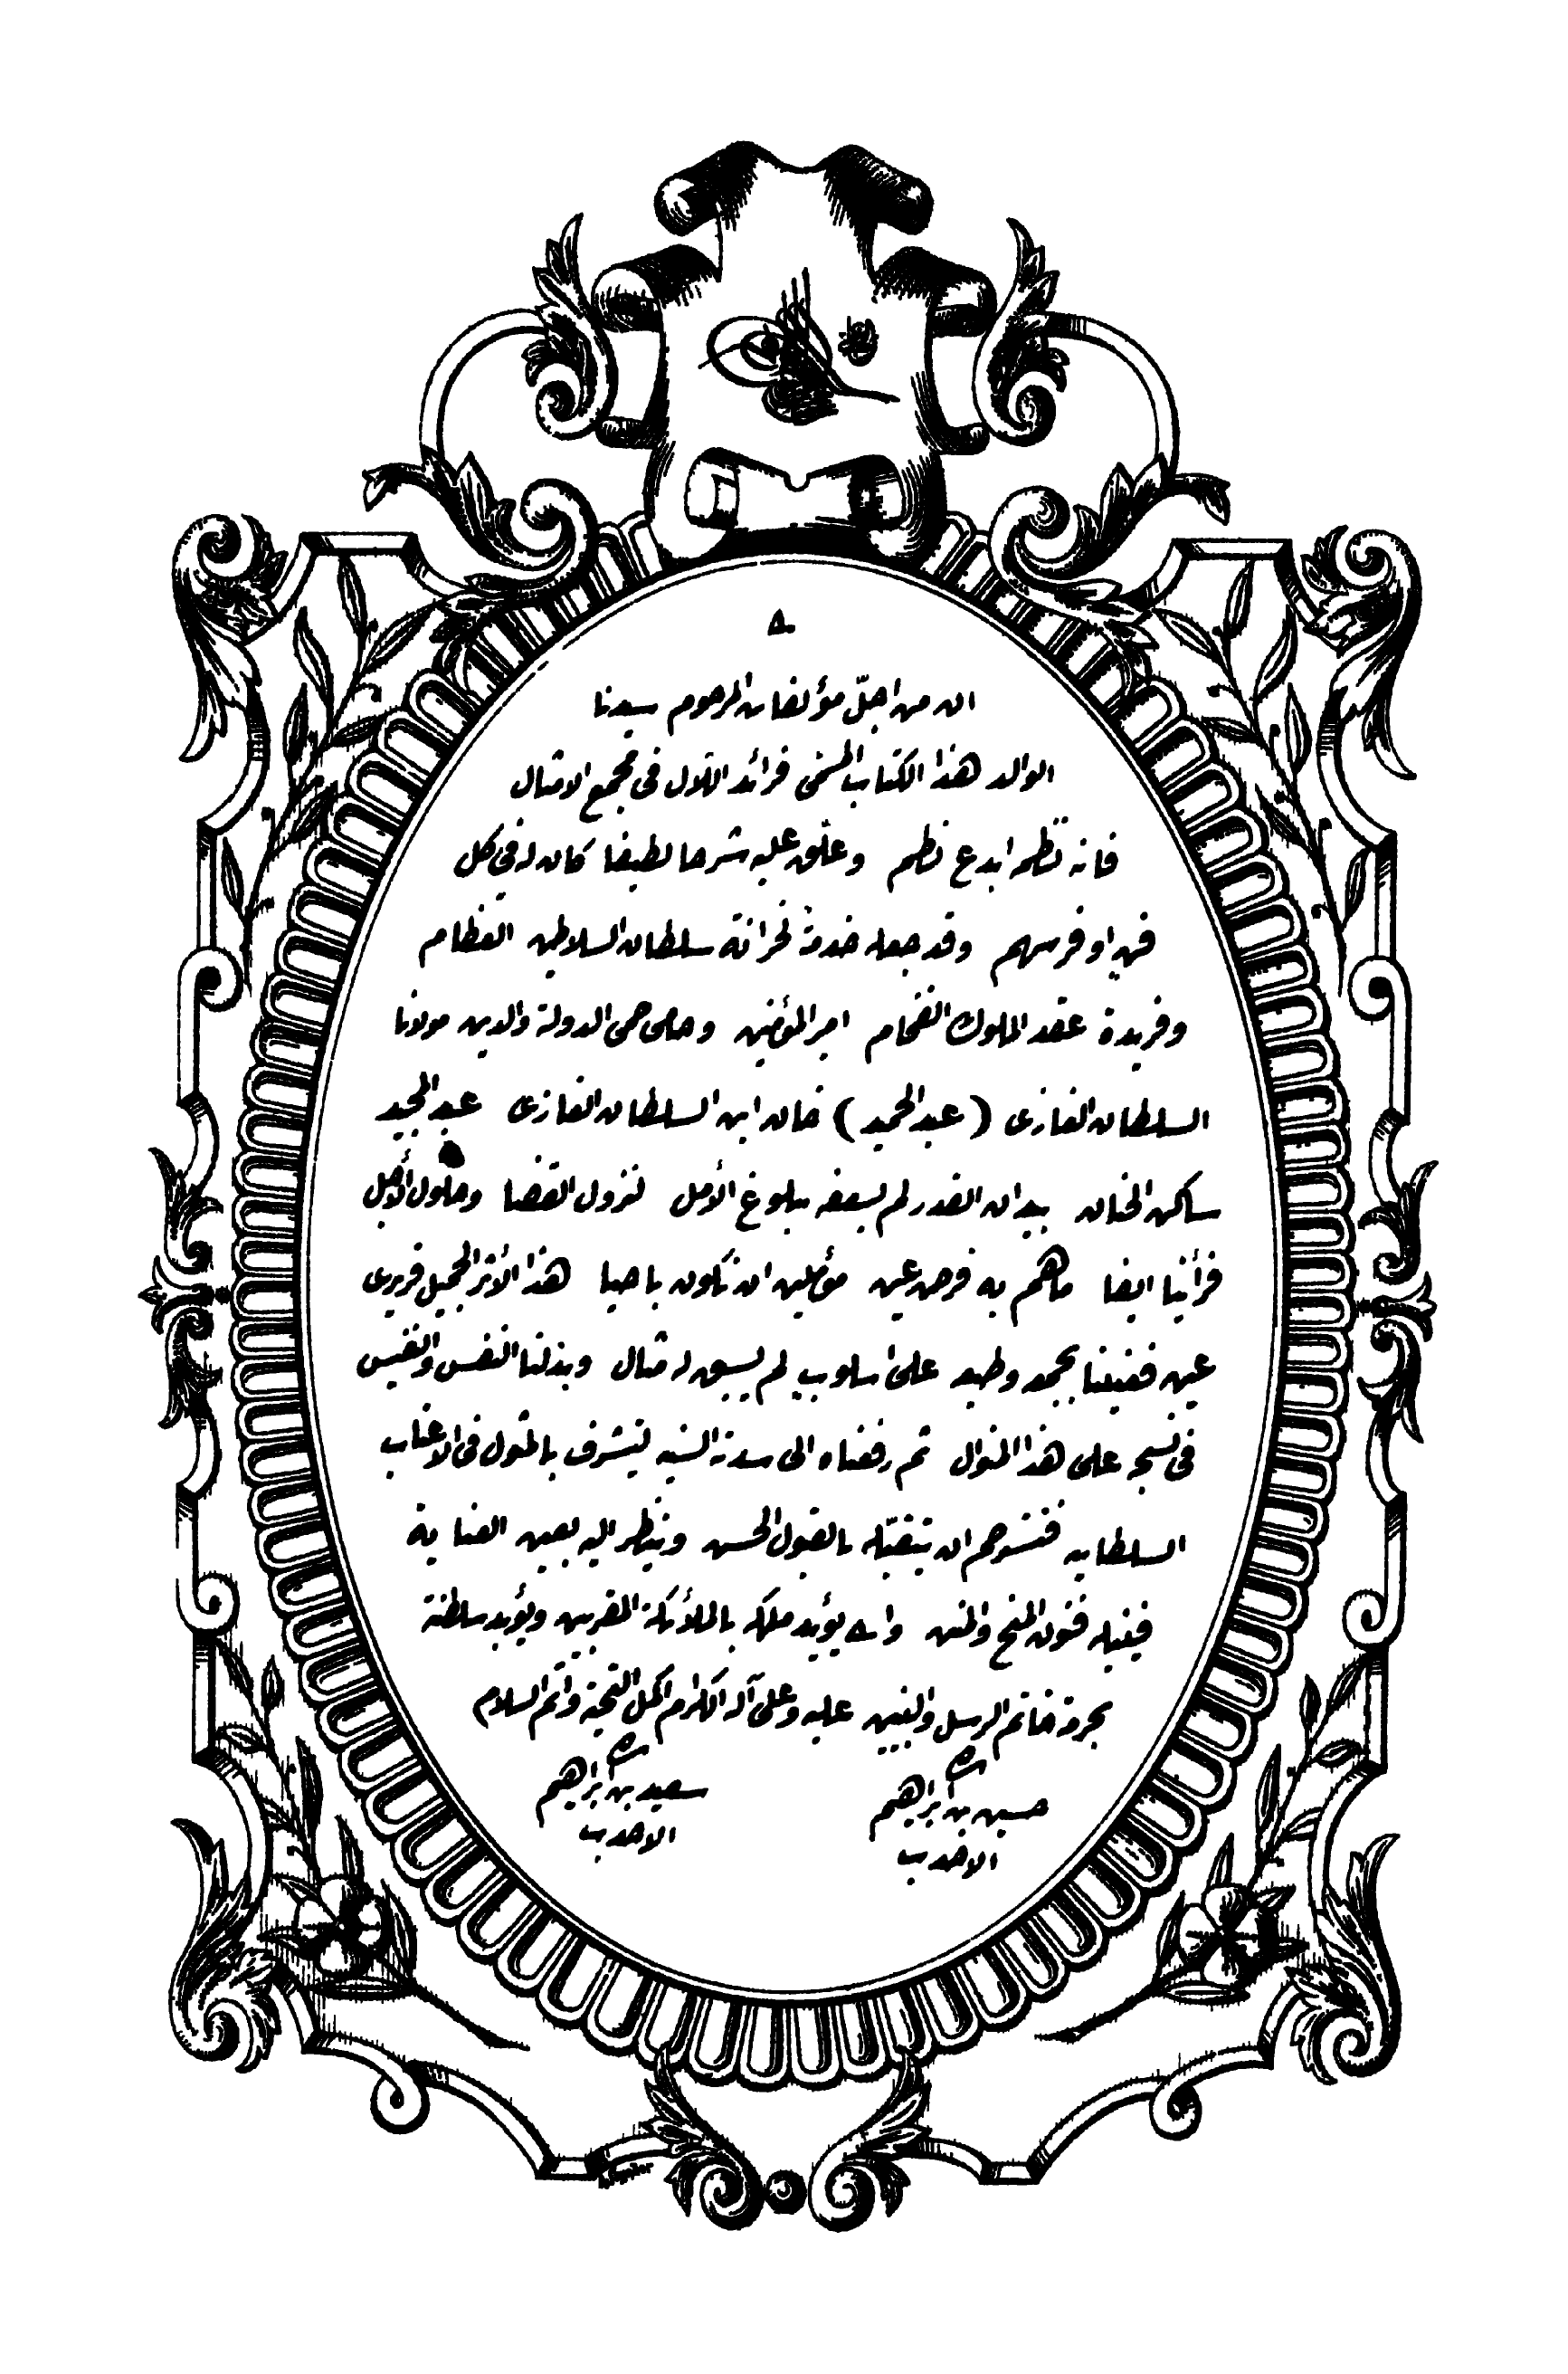 ان من اجلّ مؤلفات المرحوم سيدنا
الوالد هذا الكتاب المسمى فرائد اللال فى مجمع الامثال
فانه نظمه ابدع نظم وعلق عليه شرحا لطيفا كان له فى كل
فن اوفر سهم وقد جعله خدمة لخزانة سلطان السلاطين العظام
وفريدة عقد الملوك الفخام امير المؤمنين وحامى حمى الدولة والدين مولانا
السلطان الغازى (عبد الحميد) خان ابن السلطان الغازى عبد المجيد
ساكن الجنان بيد ان القدر لم يسعفه ببلوغ الأمل لنزول القضا وحلول الأجل
فرأينا ايفا ما هم به فرض عين مؤملين ان نكون باحيا هذا الأثر الجميل قريرى
عين فعنينا بجمعه وطبعه على اسلوب لم يسبق له مثال وبذلنا النفس والنفيس
فى نسجه على هذا المنوال ثم رفعناه الى سدته السنيه ليتشرف بالمثول فى الاعتاب
السلطانيه فنسترحم ان يتقبّله بالقبول الحسن وينظر اليه بعين العناية
فينيله فنون المنح والمنن والله يؤيد ملكه بالملائكة المقربين ويؤيد سلطنته
بحرمة خاتم الرسل والنبيين عليه وعلى آله الكرام اكمل التحية واتم السلام
حسين بن ابراهيم سعيد بن ابراهيم
الاحدب الاحدب